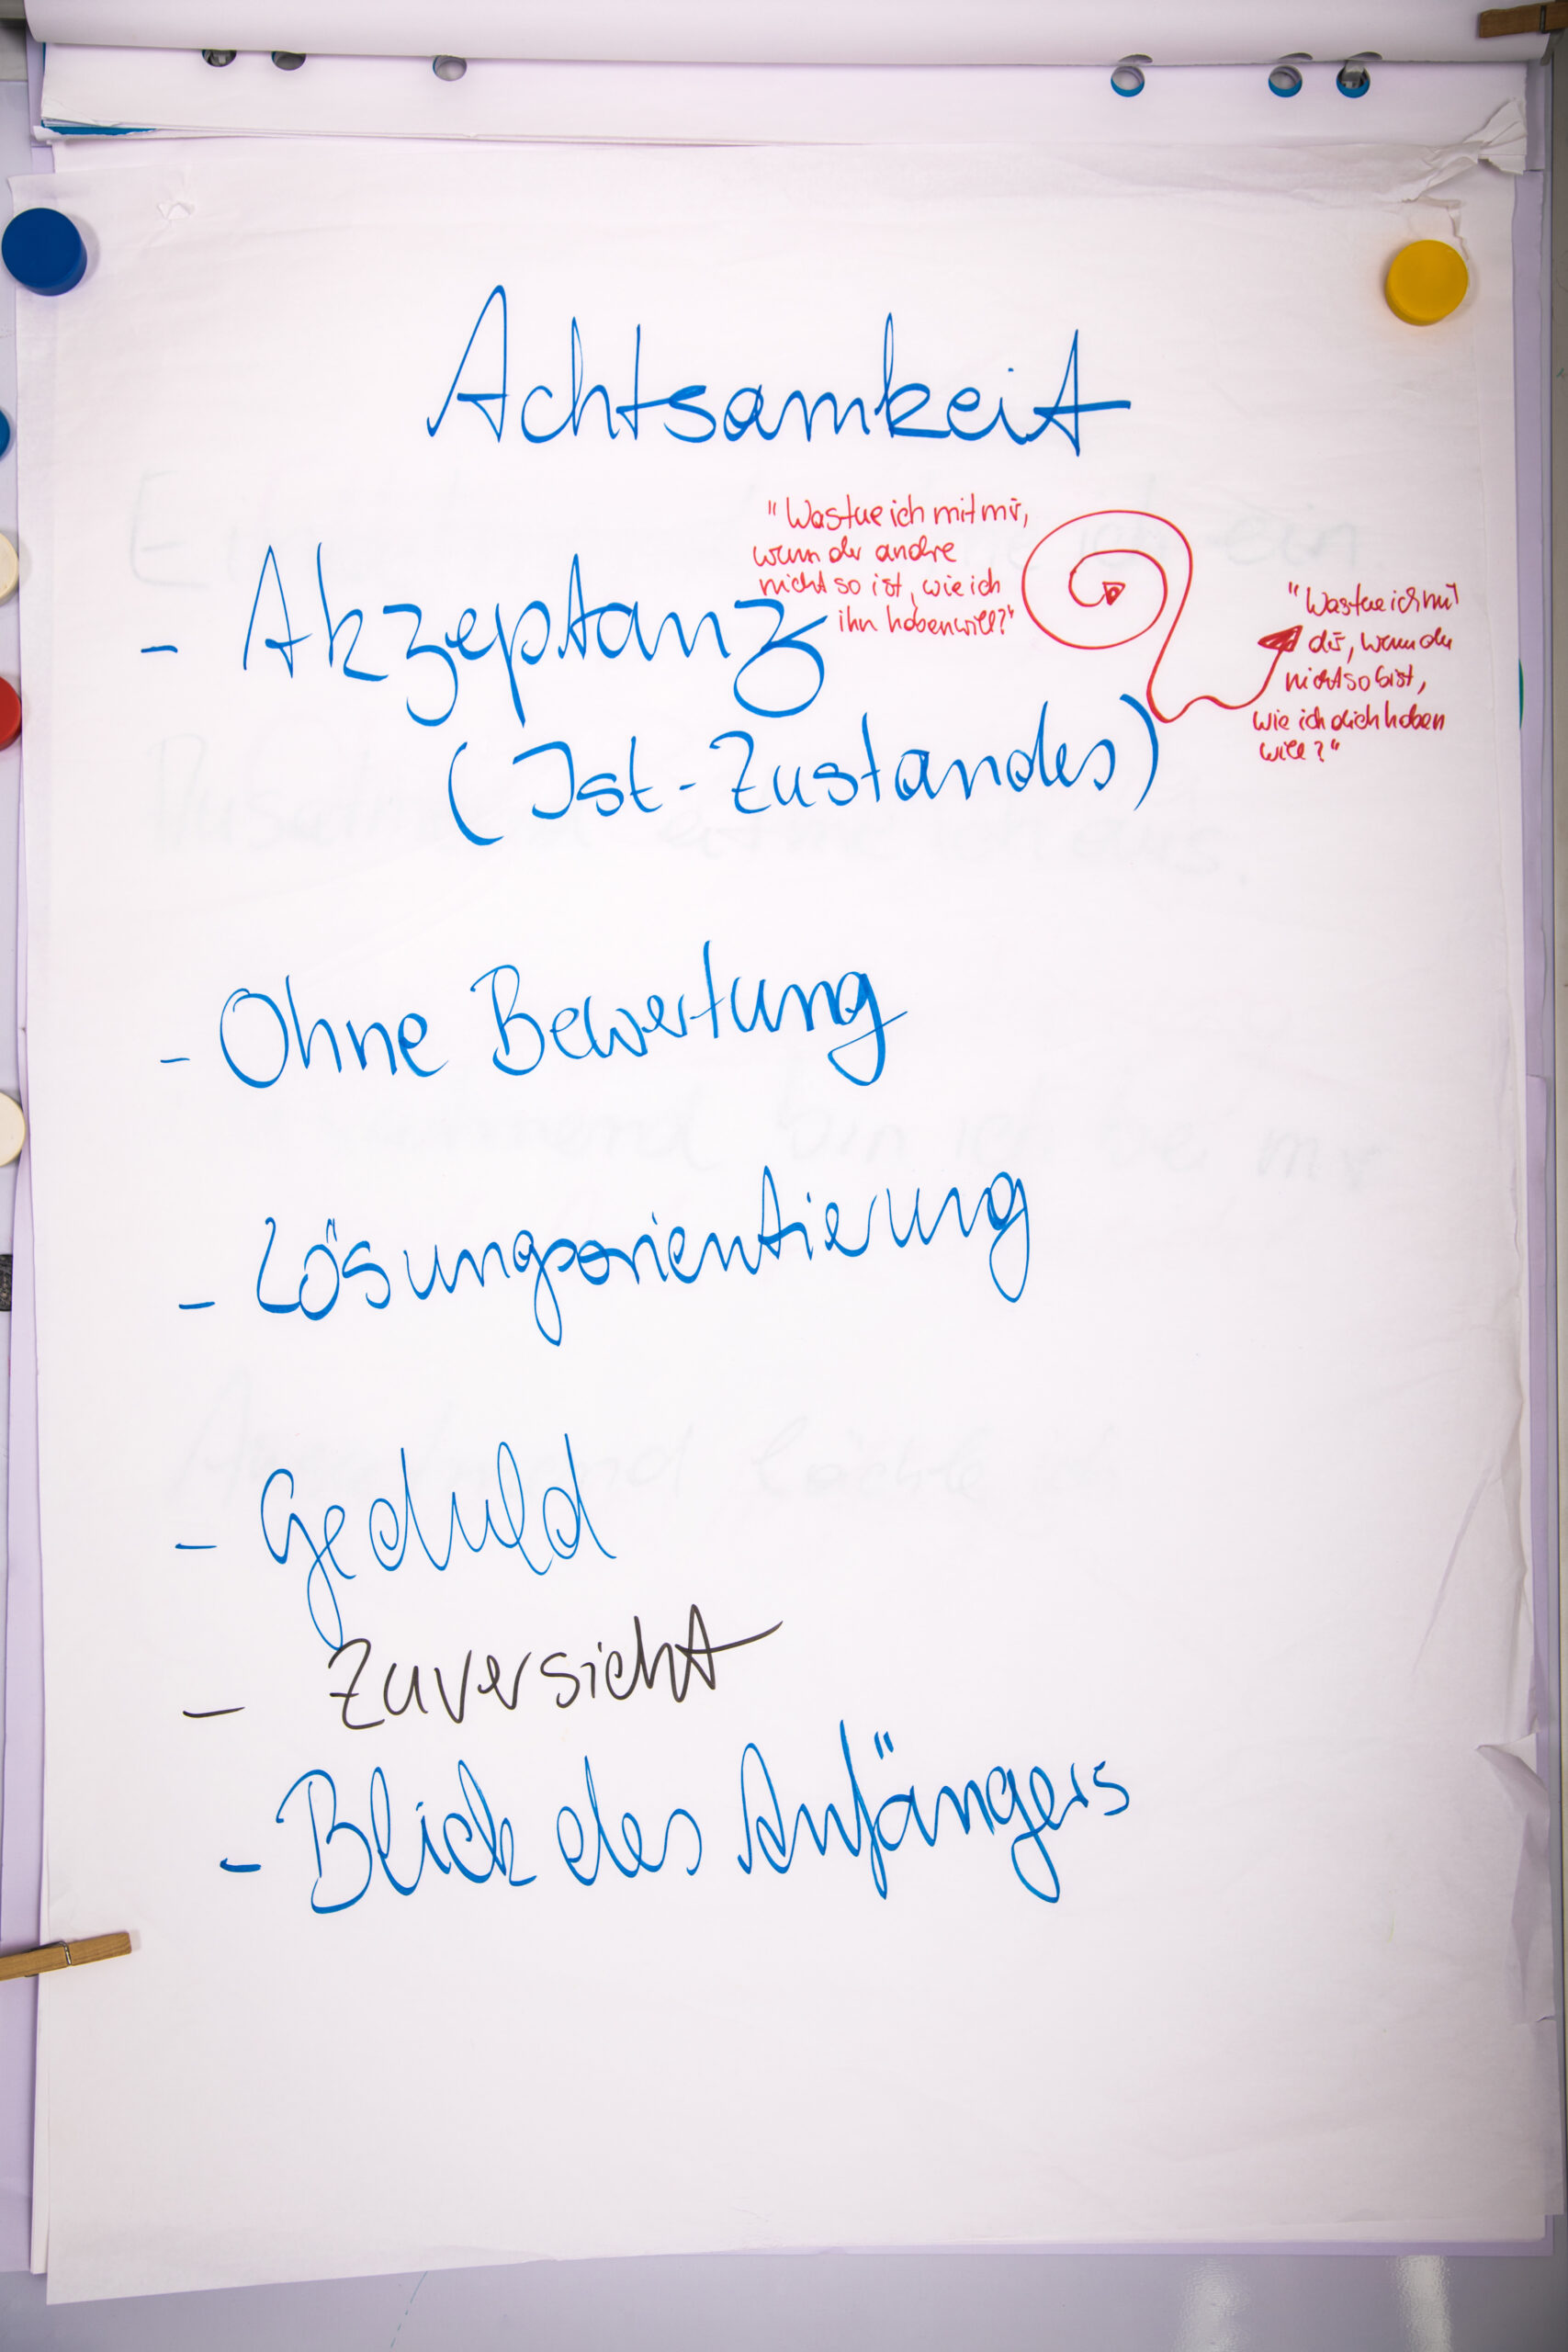 Achtsamkeit
"Was tue ich mit mir,
wenn der andre
nicht so ist, wie ich
ihn haben will?"
"Was tue ich mit
dir, wenn du
nicht so bist,
wie ich dich haben
will?"
- Akzeptanz
(Ist-Zustandes)
- Ohne Bewertung
- Lösungsorientierung
- Geduld
- Zuversicht
- Blick des Anfängers
ein.
bin ich bei mir